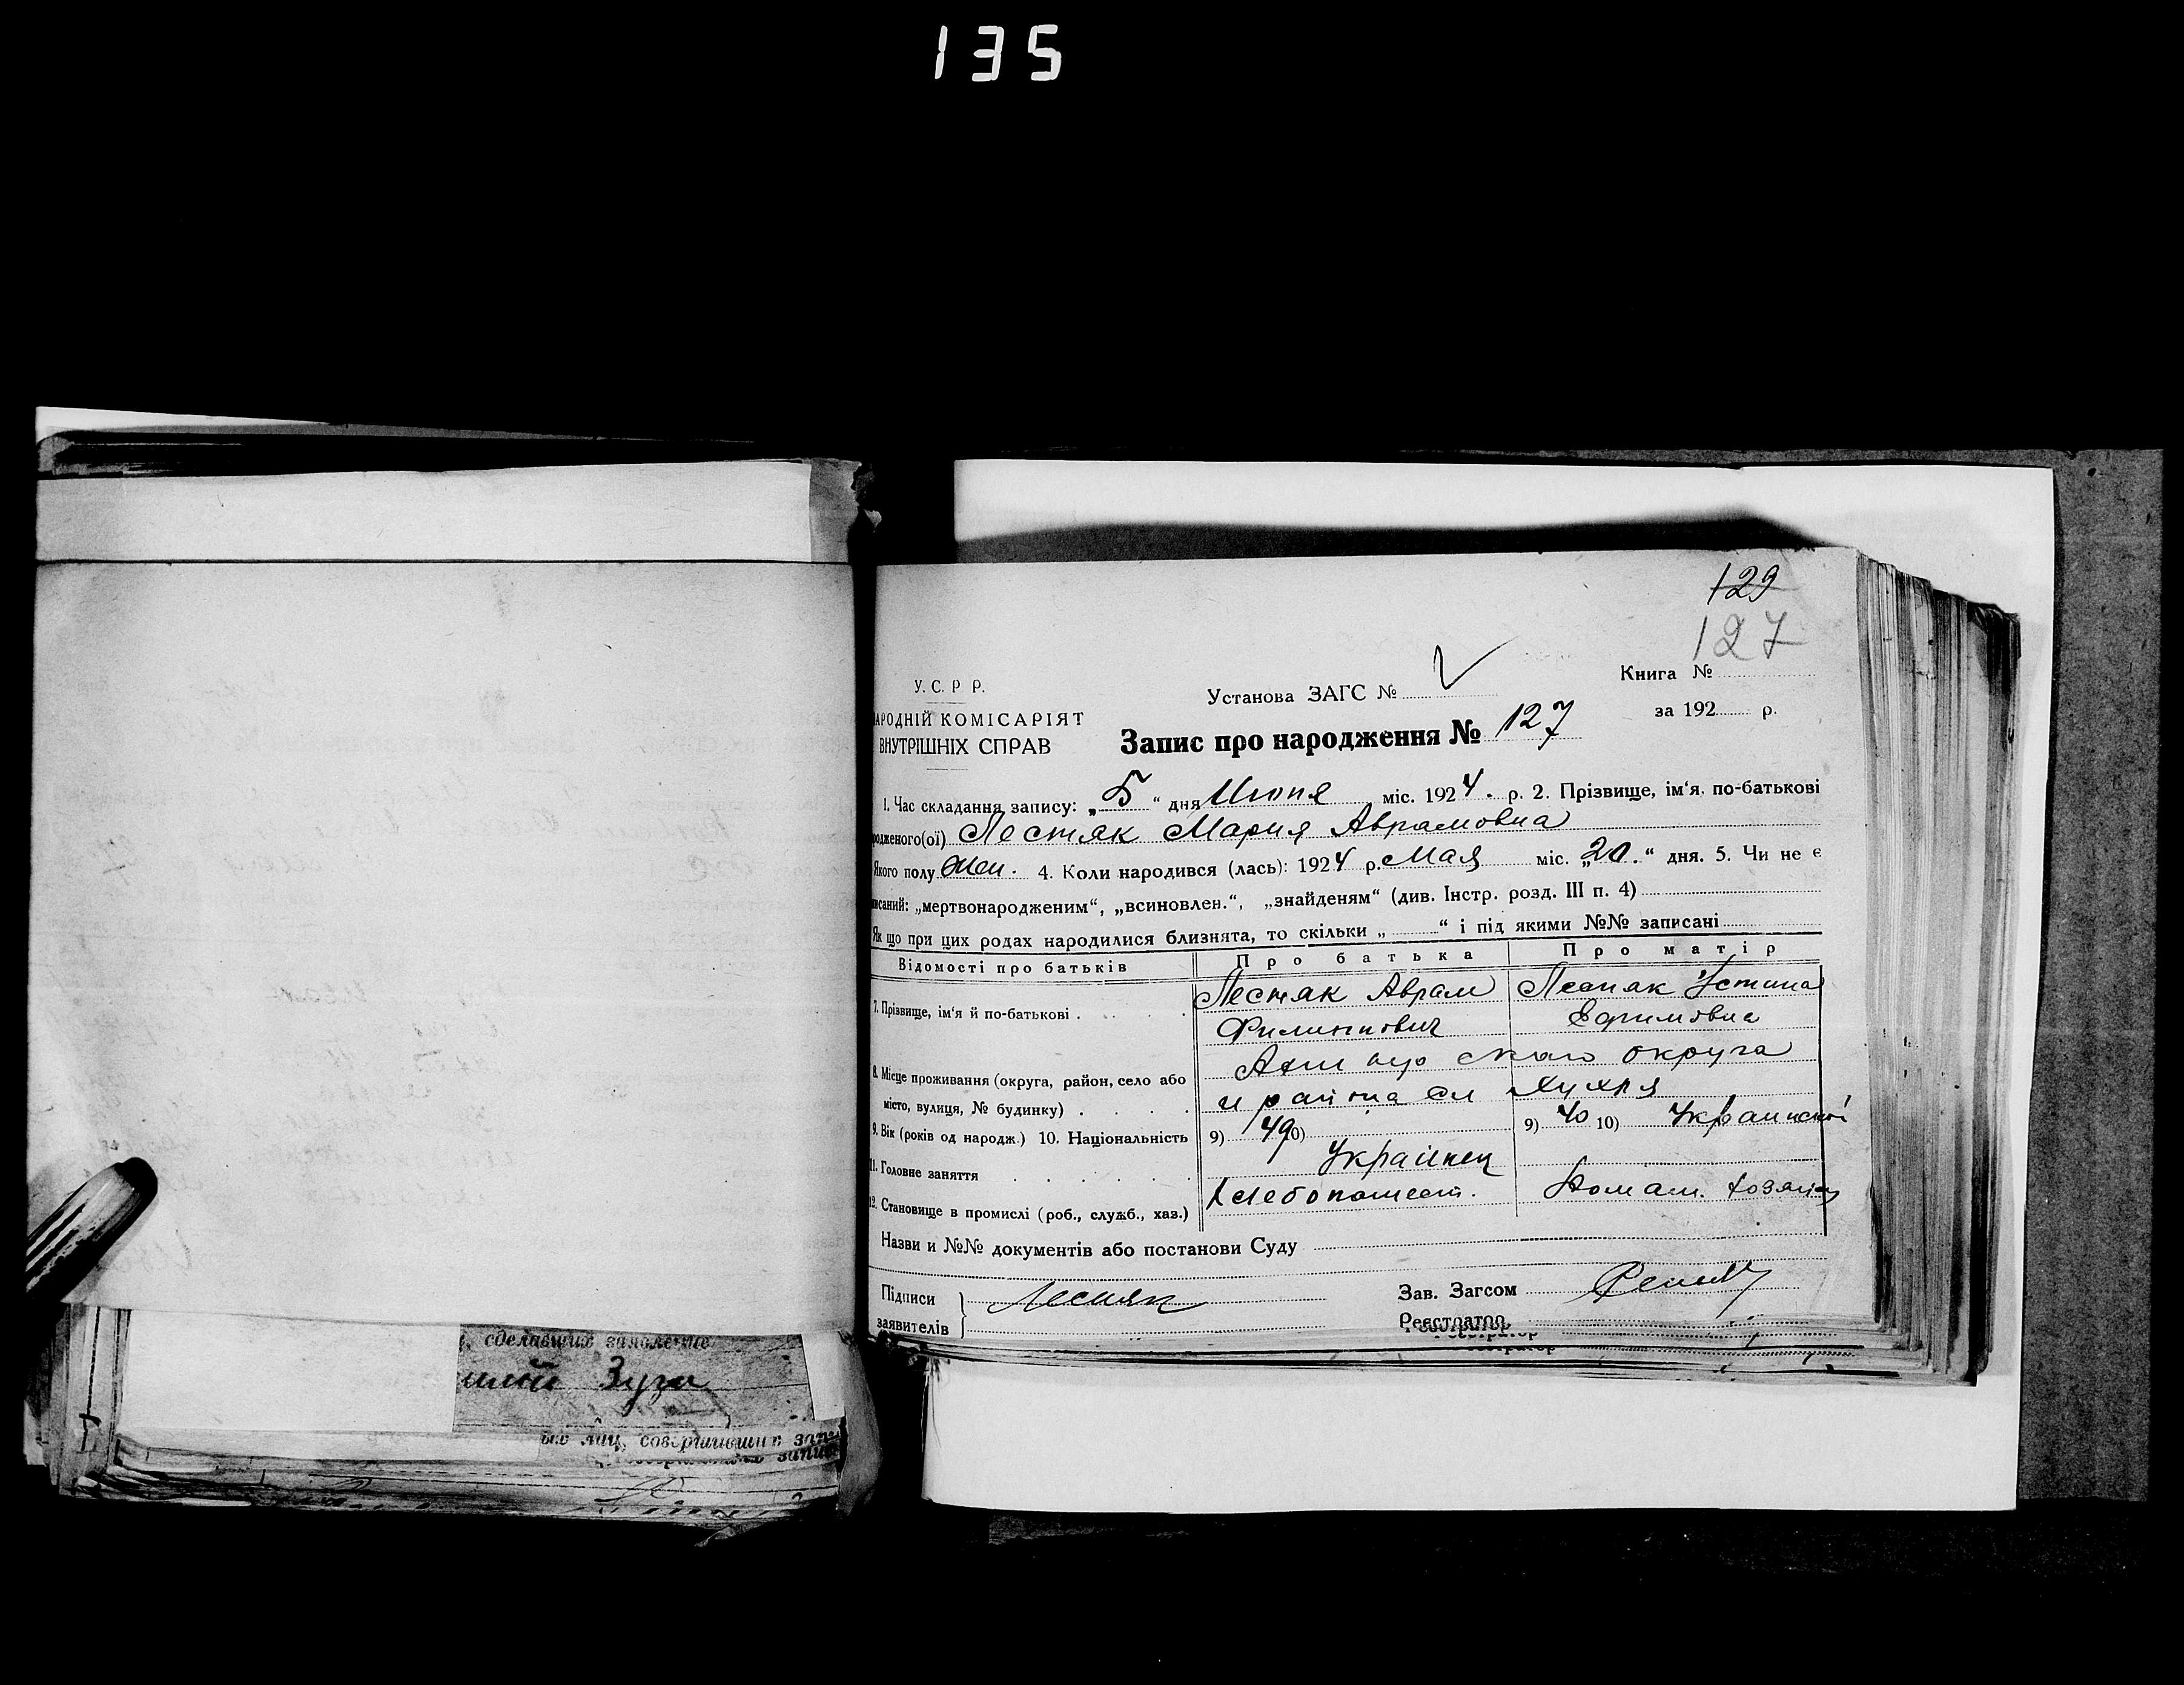 135
129
127
У. С. Р Р.
Установа ЗАГС №
Книга №
АРОДНІЙ КОМІСАРІЯТ
за 192 р.
ВНУТРІШНІХ СПРАВ
Запис про народження № 127
1. Час складання запису: „5“ дня Июня міс. 1924. р. 2. Прізвище, ім‘я, по-батькові
родженого(ої) Лестяк Мария Аврамовна
Якого полу жен. 4. Коли народився (лась): 1924 р. Мая міс. „20.“ дня. 5. Чи не є
писаний: „мертвонародженим“, „всиновлен.“, „знайденям“ (див. Інстр. розд. III п. 4)
Як що при цих родах народилися близнята, то скільки „ “ і під якими №№ записані
Відомості про батьків Про батька Про матір
7. Прізвище, ім‘я й по-батькові . . . . Лестяк Аврам Лестяк Устина
Филиппович Ефимовна
8. Місце проживання (округа, район, село або округа
місто, вулиця, № будинку) . . . . и района сл Хухря
9. Вік (років од народж.) 10. Національність 9) 49 10) 9) 40 10)
Украинец
11. Головне заняття . . . . .
12. Становище в промислі (роб., служб., хаз.) Хлебопашест. Домаш. хозяйка
Назви и №№ документів або постанови Суду
Підписи Лестяк Зав. Загсом
заявителів Реєстратор
, сделавших заявление
Зуза
ых лиц, совершивших запи